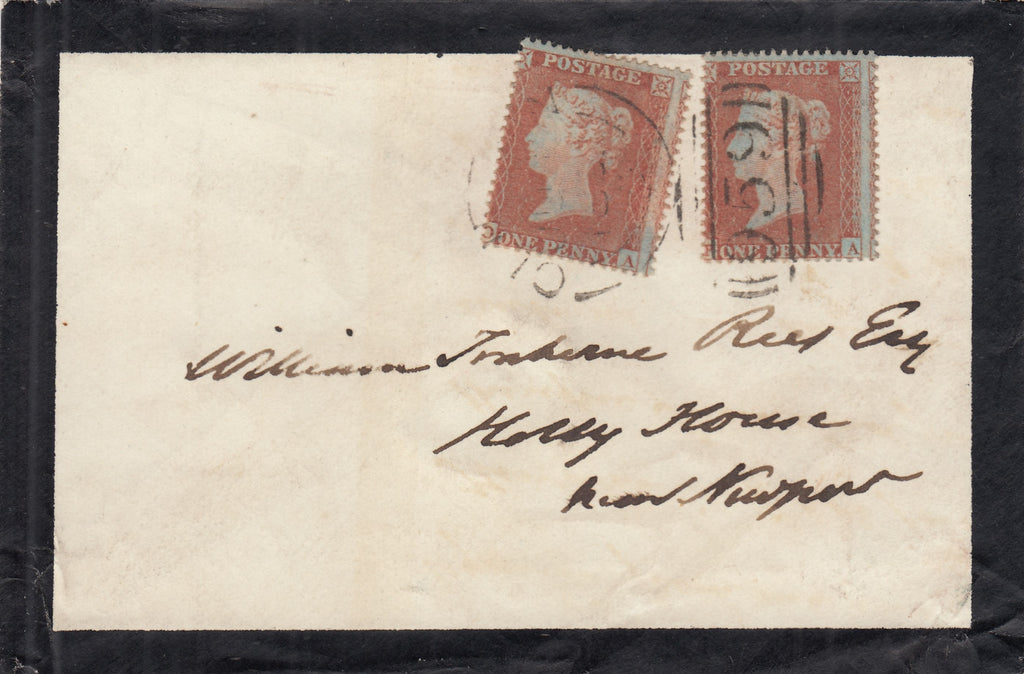 POSTAGE
ONE PENNY
A
POSTAGE
ONE PENNY
A
William Rees Esq
Holly House
near Newport